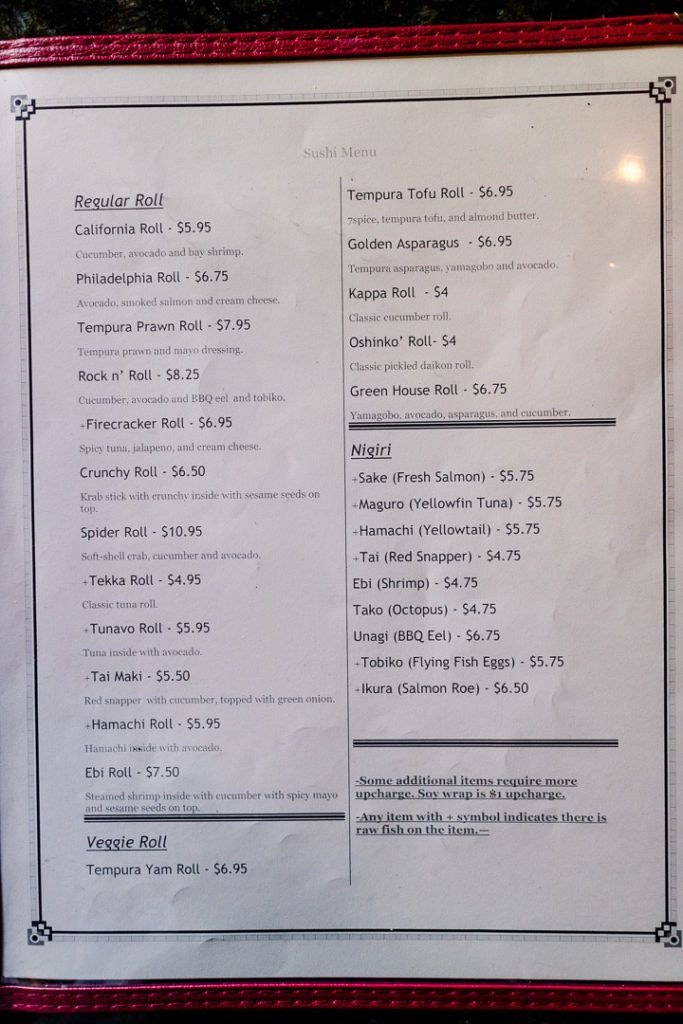 Sushi Menu
Regular Roll
California Roll - $5.95
Cucumber, avocado and bay shrimp.
Philadelphia Roll - $6.75
Avocado, smoked salmon and cream cheese.
Tempura Prawn Roll - $7.95
Tempura prawn and mayo dressing.
Rock n' Roll - $8.25
Cucumber, avocado and BBQ eel and tobiko.
+Firecracker Roll - $6.95
Spicy tuna, jalapeno, and cream cheese.
Crunchy Roll - $6.50
Krab stick with crunchy inside with sesame seeds on
top.
Spider Roll - $10.95
Soft-shell crab, cucumber and avocado.
+Tekka Roll - $4.95
Classic tuna roll.
+Tunavo Roll - $5.95
Tuna inside with avocado.
+Tai Maki - $5.50
Red snapper with cucumber, topped with green onion.
+Hamachi Roll - $5.95
Hamachi inside with avocado.
Ebi Roll - $7.50
Steamed shrimp inside with cucumber with spicy mayo
and sesame seeds on top.
Veggie Roll
Tempura Yam Roll - $6.95
Tempura Tofu Roll - $6.95
7spice, tempura tofu, and almond butter.
Golden Asparagus - $6.95
Tempura asparagus, yamagobo and avocado.
Kappa Roll - $4
Classic cucumber roll.
Oshinko' Roll- $4
Classic pickled daikon roll.
Green House Roll - $6.75
Yamagobo, avocado, asparagus, and cucumber.
Nigiri
+Sake (Fresh Salmon) - $5.75
+Maguro (Yellowfin Tuna) - $5.75
+Hamachi (Yellowtail) - $5.75
+Tai (Red Snapper) - $4.75
Ebi (Shrimp) - $4.75
Tako (Octopus) - $4.75
Unagi (BBQ Eel) - $6.75
+Tobiko (Flying Fish Eggs) - $5.75
+Ikura (Salmon Roe) - $6.50
-Some additional items require more
upcharge. Soy wrap is $1 upcharge.
-Any item with + symbol indicates there is
raw fish on the item.—